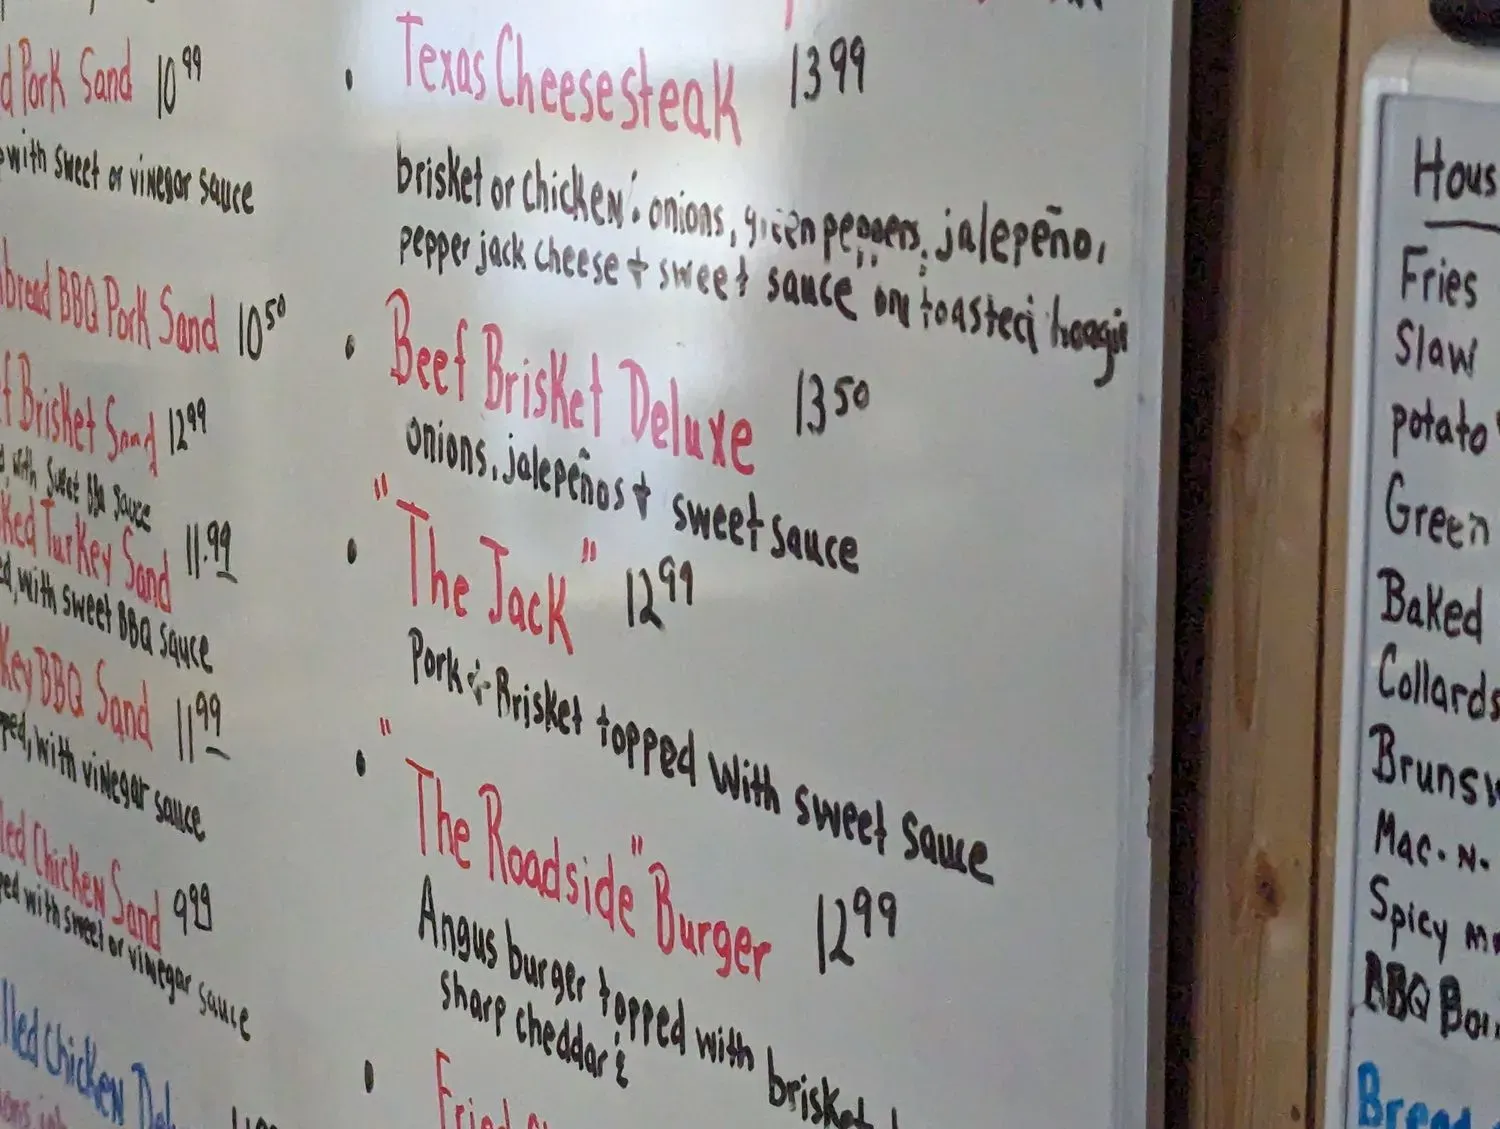 Pork Sand 10 99
with sweet or vinegar sauce
BBQ Pork Sand 10 50
Brisket Sand 12 99
with sweet BBQ sauce
Turkey Sand 11.99
with sweet BBQ sauce
BBQ Sand 11 99
with vinegar sauce
Chicken Sand 9 99
with sweet or vinegar sauce
Chicken
Texas Cheesesteak 13 99
brisket or chicken: onions, green peppers, jalepeño,
pepper jack cheese & sweet sauce on toasted hoagie
Beef Brisket Deluxe 13 50
onions, jalepeños & sweet sauce
"The Jack" 12 99
Pork & Brisket topped with sweet sauce
"The Roadside" Burger 12 99
Angus burger topped with brisket
sharp cheddar &
Fried
Fries
Slaw
potato
Green
Baked
Collards
Mac-N-
Spicy
BBQ
Bread